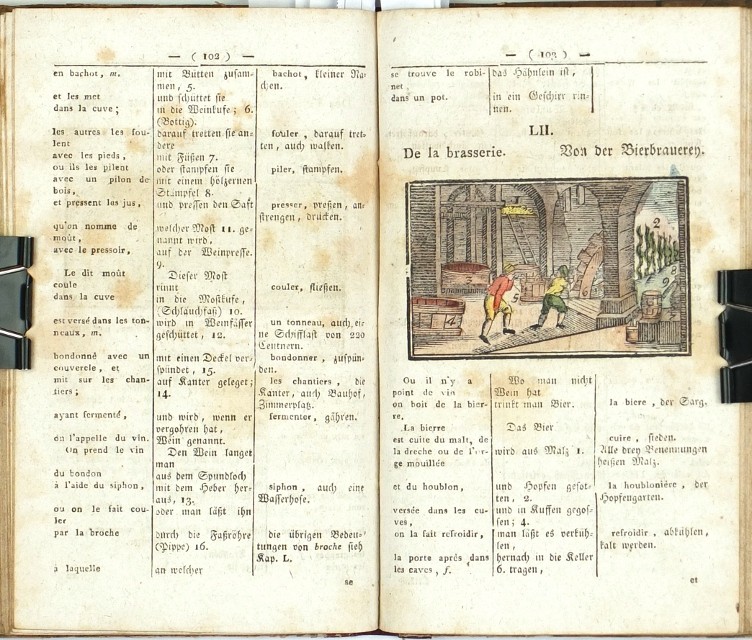 — ( 102 ) —
en bachot, m.
et les met
dans la cuve;
les autres les fou-
lent
avec les pieds,
ou ils les pilent
avec un pilon de
bois,
et pressent les jus,
qu'on nomme de
moût,
avec le pressoir,
Le dit moût
coule
dans la cuve
est versé dans les ton-
neaux, m.
bondonné avec un
couvercle, et
mit sur les chan-
tiers;
ayant fermenté,
on l'appelle du vin.
On prend le vin
du bondon
à l'aide du siphon,
ou on le fait cou-
ler
par la broche
à laquelle
mit Bütten zusam-
men, 5.
und schüttet sie
in die Weinkufe; 6.
(Bottig).
darauf tretten sie an-
dere
mit Füßen 7.
oder stampfen sie
mit einem hölzernen
Stämpfel 8.
und pressen den Saft
welcher Most 11. ge-
nannt wird,
auf der Weinpresse.
9.
Dieser Most
rinnt
in die Mostkufe,
(Schlauchfaß) 10.
wird in Weinfässer
geschüttet, 12.
mit einen Deckel ver-
spündet, 15.
auf Kanter geleget;
14.
und wird, wenn er
vergohren hat,
Wein genannt.
Den Wein langet
man
aus dem Spundloch
mit dem Heber her-
aus, 13.
oder man läßt ihn
durch die Faßröhre
(Pippe) 16.
an welcher
bachot, kleiner Na-
chen.
fouler, darauf tret-
ten, auch walken.
piler, stampfen.
presser, preßen, an-
strengen, drücken.
couler, fließen.
un tonneau, auch, ei-
ne Schifflast von 220
Centnern.
bondonner, zuspün-
den.
les chantiers, die
Kanter, auch Bauhof,
Zimmerplatz.
fermenter, gähren.
siphon, auch eine
Wasserhose.
die übrigen Bedeu-
tungen von broche sieh
Kap. L.
se
— ( 103 ) —
se trouve le robi-
net
dans un pot.
das Hähnlein ist,
in ein Geschirr rin-
nen.
LII.
De la brasserie. Von der Bierbrauerey.
2
5
9
8
6
4
Ou il n'y a
point de vin
on boit de la bier-
re.
La bierre
est cuite du malt, de
la dreche ou de l'or-
ge mouillée
et du houblon,
versée dans les cu-
ves,
on la fait refroidir,
la porte après dans
les caves, f.
Wo man nicht
Wein hat
trinkt man Bier.
Das Bier
wird aus Malz 1.
und Hopfen gesot-
ten, 2.
und in Kuffen gegos-
sen; 4.
man läßt es verküh-
len,
hernach in die Keller
6. tragen,
la biere, der Sarg.
cuire, sieden.
Alle drey Benennungen
heißen Malz.
la houblonière, der
Hopfengarten.
refroidir, abkühlen,
kalt werden.
et